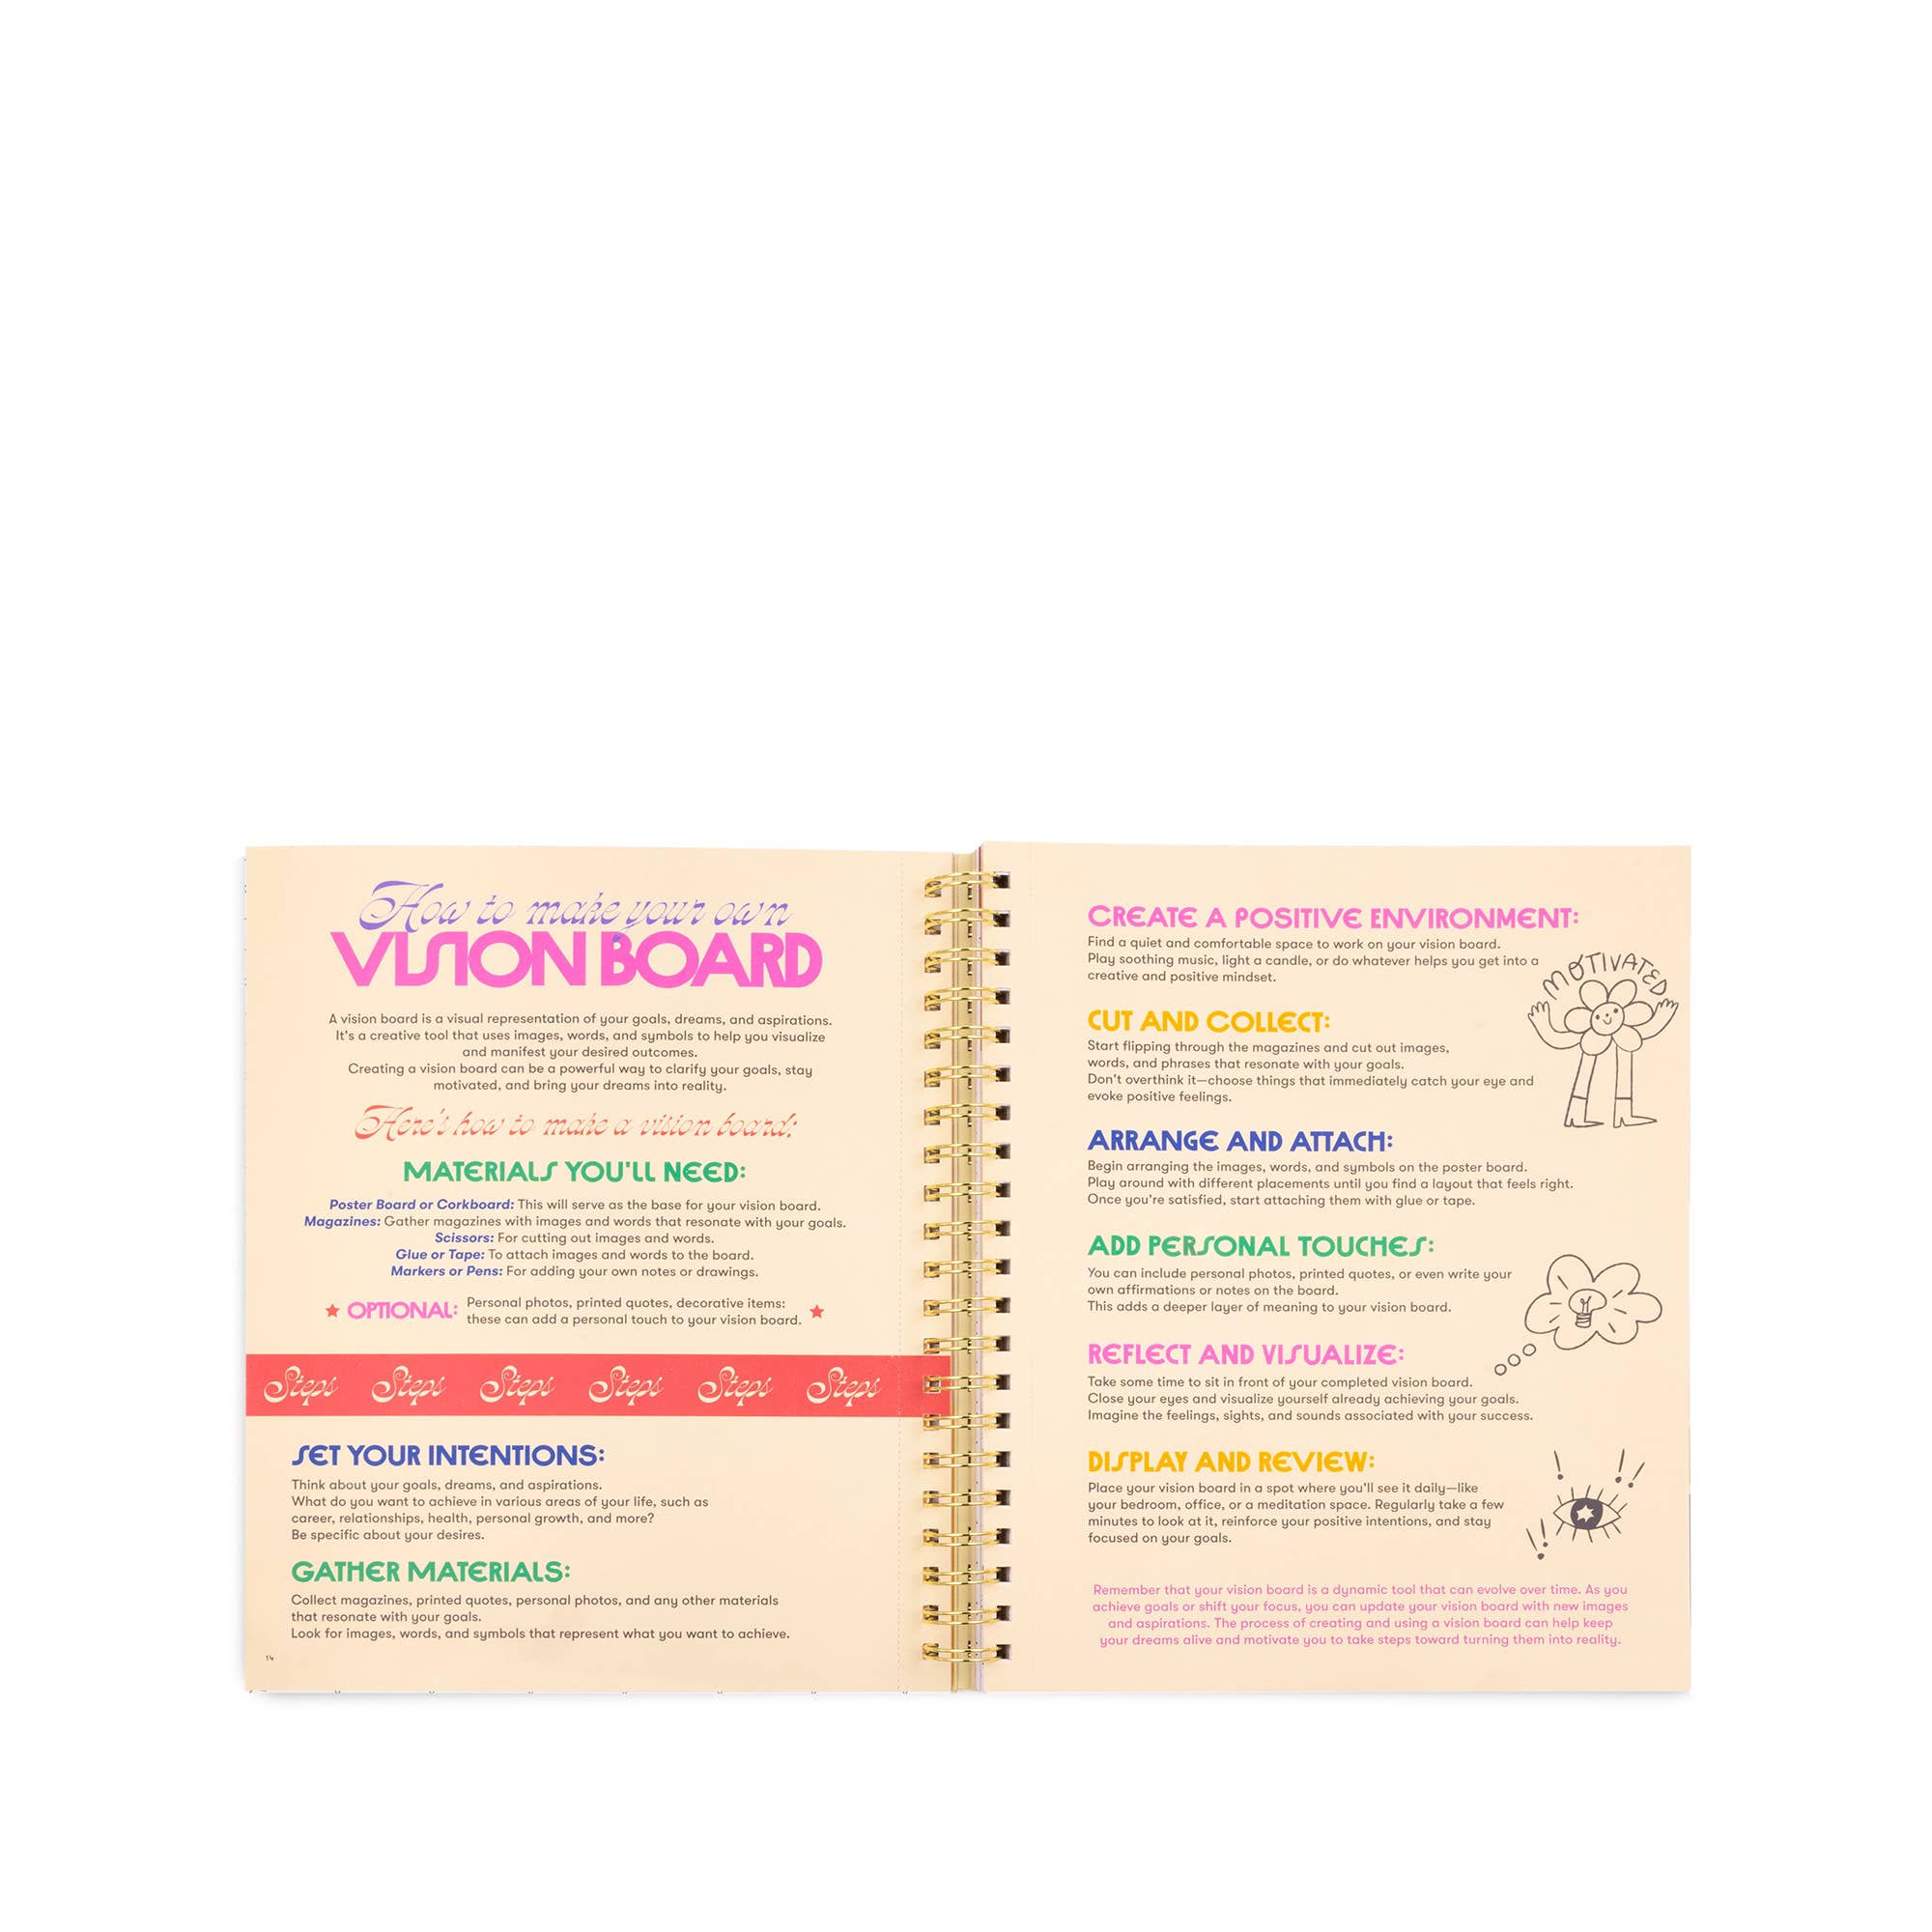 How to make your own
VISION BOARD
A vision board is a visual representation of your goals, dreams, and aspirations.
It's a creative tool that uses images, words, and symbols to help you visualize
and manifest your desired outcomes.
Creating a vision board can be a powerful way to clarify your goals, stay
motivated, and bring your dreams into reality.
Here's how to make a vision board:
MATERIALS YOU'LL NEED:
Poster Board or Corkboard: This will serve as the base for your vision board.
Magazines: Gather magazines with images and words that resonate with your goals.
Scissors: For cutting out images and words.
Glue or Tape: To attach images and words to the board.
Markers or Pens: For adding your own notes or drawings.
OPTIONAL: Personal photos, printed quotes, decorative items:
these can add a personal touch to your vision board.
Steps Steps Steps Steps Steps Steps
SET YOUR INTENTIONS:
Think about your goals, dreams, and aspirations.
What do you want to achieve in various areas of your life, such as
career, relationships, health, personal growth, and more?
Be specific about your desires.
GATHER MATERIALS:
Collect magazines, printed quotes, personal photos, and any other materials
that resonate with your goals.
Look for images, words, and symbols that represent what you want to achieve.
14
CREATE A POSITIVE ENVIRONMENT:
Find a quiet and comfortable space to work on your vision board.
Play soothing music, light a candle, or do whatever helps you get into a
creative and positive mindset.
MOTIVATED
CUT AND COLLECT:
Start flipping through the magazines and cut out images,
words, and phrases that resonate with your goals.
Don't overthink it—choose things that immediately catch your eye and
evoke positive feelings.
ARRANGE AND ATTACH:
Begin arranging the images, words, and symbols on the poster board.
Play around with different placements until you find a layout that feels right.
Once you're satisfied, start attaching them with glue or tape.
ADD PERSONAL TOUCHES:
You can include personal photos, printed quotes, or even write your
own affirmations or notes on the board.
This adds a deeper layer of meaning to your vision board.
REFLECT AND VISUALIZE:
Take some time to sit in front of your completed vision board.
Close your eyes and visualize yourself already achieving your goals.
Imagine the feelings, sights, and sounds associated with your success.
DISPLAY AND REVIEW:
Place your vision board in a spot where you'll see it daily—like
your bedroom, office, or a meditation space. Regularly take a few
minutes to look at it, reinforce your positive intentions, and stay
focused on your goals.
Remember that your vision board is a dynamic tool that can evolve over time. As you
achieve goals or shift your focus, you can update your vision board with new images
and aspirations. The process of creating and using a vision board can help keep
your dreams alive and motivate you to take steps toward turning them into reality.